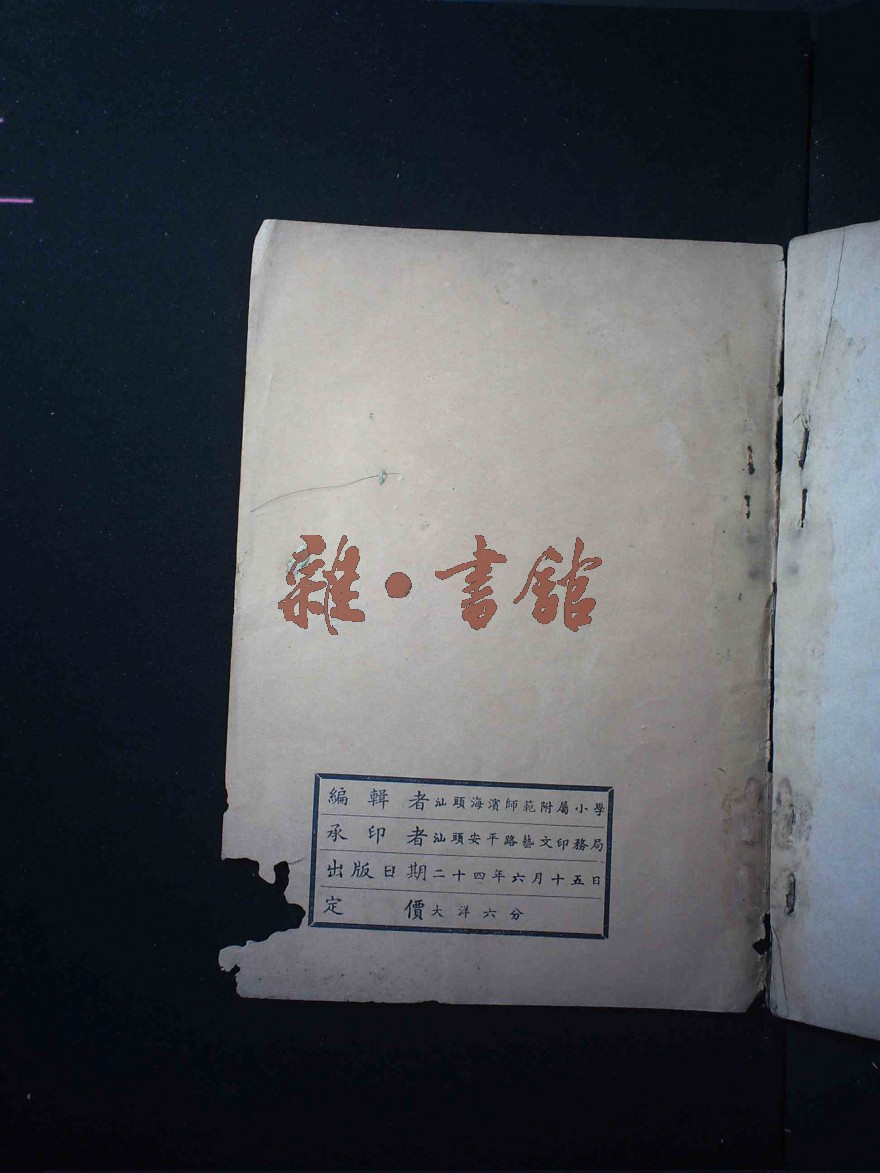 雜·書館
編輯者汕頭海濱師範附屬小學
承印者汕頭安平路藝文印務局
出版日期二十四年六月十五日
定價大洋六分